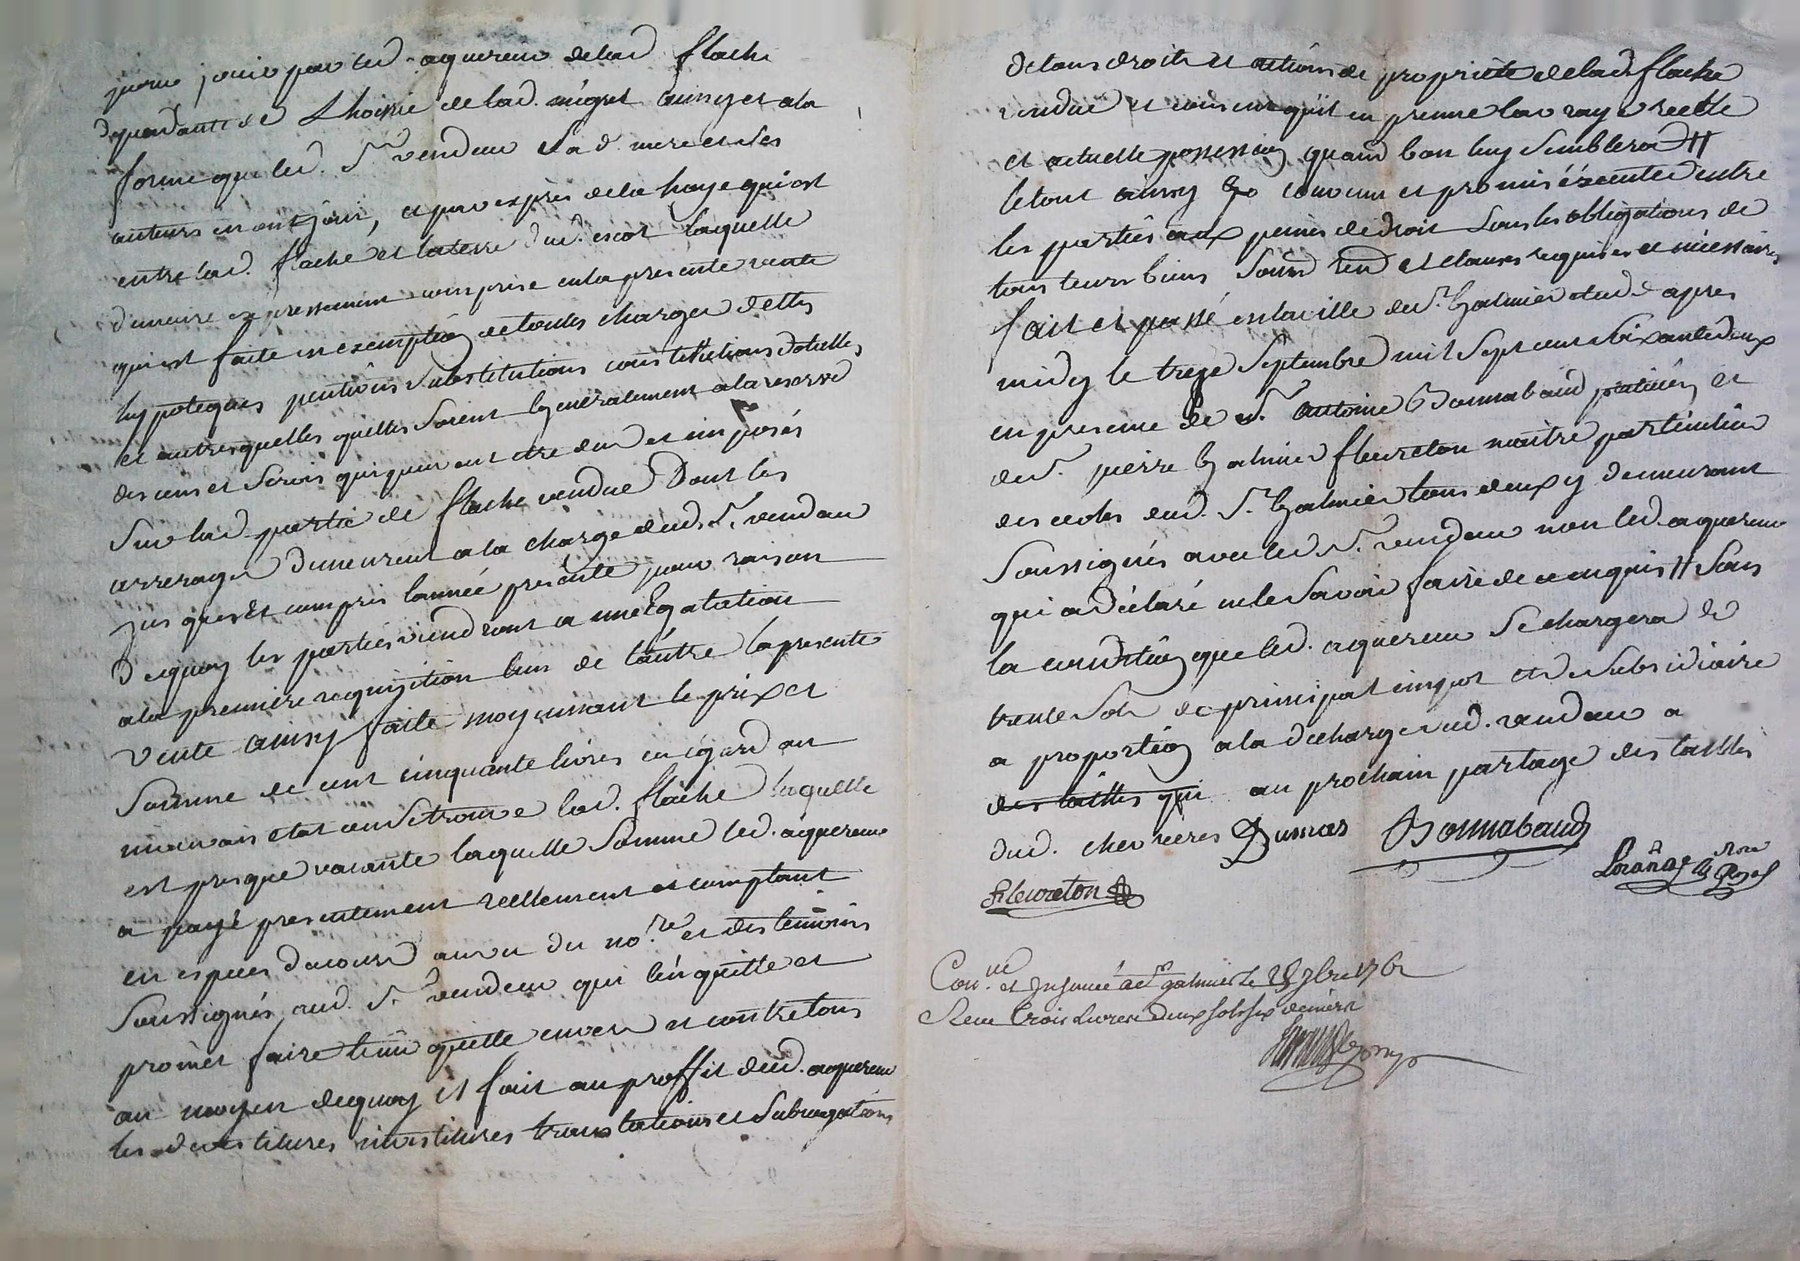 pour jouir par led. aquereur delad. flache
dependante de Lhoirie de lad. migret ainsy et a la
forme que led. Sr. vendeur Sa d. mere et Ses
auteurs en ont joui, et par exprès de la haye qui est
entre lad. flache et la terre dud. escot laquelle
demeure expressement comprise en la presente vente
qui est faite en exemption de toutes charges dettes
hypoteques pentions Substitutions constitutions dotalles
et autres quelles quelles Soient generalement a la reserve
des cens et Servis qui peuvent etre dus et imposés
Sur lad. partie de flache vendue Dont les
arrerages demeurent a la charge dud. Sr. vendeur
jusques et compris lannée presente pour raison
De quoy les parties viendront a une Egalation
a la premiere requisition lun de lautre la presente
vente ainsy faite moyennant le prix et
Somme de cent cinquante livres eu égard au
mauvais etat ou Se trouve lad. flache laquelle
est presque vacante laquelle Somme led. aquereur
a payé presentement reellement et comptant
en especes de cours au vu du nore. et des temoins
Soussignés aud. Sr. vendeur qui len quitte et
promet faire tenir quitte envers et contre tous
au moyen de quoy il fait au proffit dud. aquereur
les devestitures investitures translations et Subrogations
de tous droits et actions de propriete de lad. flache
vendue et consent quil en prenne la vraye reelle
et actuelle possession quand bon luy Semblera #
le tout ainsy convenu et promis éxecuter entre
les parties aux peines de droit Sous les obligations de
tous leurs biens Soumd. rend. et clauses requises et necessaires
fait et passé en la ville de St. Galmier etude apres
midy le treze Septembre mil Sept cent Soixante deux
en presence de Sr. antoine Bonnabaud praticien et
de Sr. pierre Galmier fleureton maitre particulier
des ecoles dud. St. Galmier tous deux y demeurant
Soussignés avec led. Sr. vendeur non led. aquereur
qui a déclaré ne le Savoir faire de ce enquis # Sous
la condition que led. aquereur Se chargera de
trente Sols de principal impot et de Subsidiaire
a proportion a la decharge dud. vendeur a
des tailles qui au prochain partage des tailles
dud. chevrieres Dumas Bonnabaud
fleureton
Conlle. et Insinué a St. galmier le 7bre 1762
Receu trois Livres deux sols six deniers